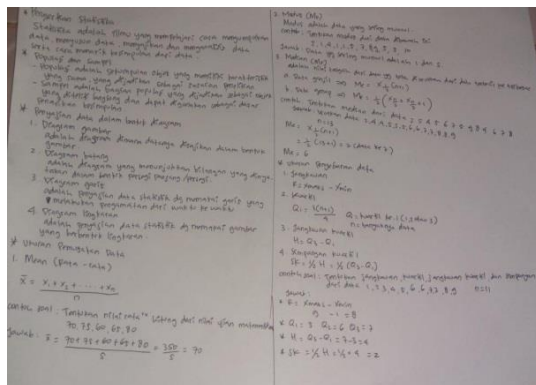 * Pengertian Statistika
Statistika adalah ilmu yang mempelajari cara mengumpulkan
data, menyusun data, menyajikan dan menganalisis data
serta cara menarik kesimpulan dari data.
* Populasi dan Sampel
- Populasi adalah sekumpulan objek yang memiliki karakteristik
yang sama, yang dijadikan sebagai sasaran penelitian
- Sampel adalah bagian populasi yang dijadikan sebagai objek
yang diteliti langsung dan dapat digunakan sebagai dasar
penarikan kesimpulan
* Penyajian data dalam bentuk diagram
1. Diagram gambar
adalah diagram dimana datanya disajikan dalam bentuk
gambar
2. Diagram batang
adalah diagram yang menunjukkan bilangan yang dinya-
takan dalam bentuk persegi panjang/persegi.
3. Diagram garis
adalah penyajian data statistik dg memakai garis yang
melakukan pengamatan dari waktu ke waktu
4. Diagram lingkaran
adalah penyajian data statistik dg memakai gambar
yang berbentuk lingkaran.
* Ukuran Pemusatan Data
1. Mean (Rata-rata)
x̄ = x₁ + x₂ + ... + xₙ
n
contoh soal. Tentukan nilai rata² hitung dari nilai ujian matematika
70, 75, 60, 65, 80
Jawab: x̄ = 70+75+60+65+80 = 350 = 70
5 5
2. Modus (Mo)
Modus adalah data yang sering muncul.
contoh: Tentukan modus dari data dibawah ini
Jawab: Data yg sering muncul adalah 1 dan 5
3. Median (Me)
a. Data ganjil
b. Data genap
contoh: Tentukan median dari data
n = 13
Me = 6
* Ukuran penyebaran data
1. Jangkauan
R = Xmaks - Xmin
2. Kuartil
n = banyaknya data
3. Jangkauan kuartil
H = Q₃ - Q₁
4. Simpangan kuartil
SK = ½ H = ½ (Q₃ - Q₁)
contoh soal: Tentukan jangkauan, kuartil, jangkauan kuartil dan simpangan
dari data 1, 2, 3, 4, 5, 6, 6, 7, 7, 8, 9 n = 11
Jawab:
* R = Xmaks - Xmin
9 - 1 = 8
* Q₁ = 3 Q₂ = 6 Q₃ = 7
* H = Q₃ - Q₁ = 7-3 = 4
* SK = ½ H = ½ × 4 = 2